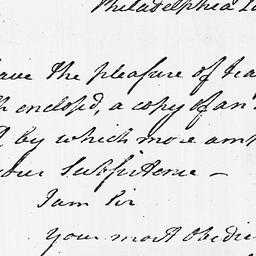 Philadelphia
ave the pleasure of
enclosed, a copy of an
by which more am
your Subsistence —
I am Sir
your most Obedie